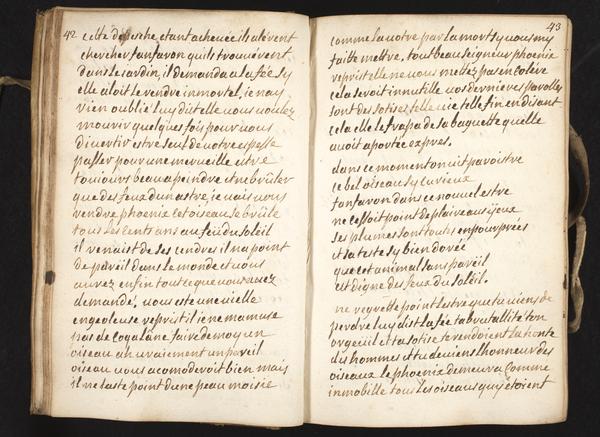 42
cette depesche, etant achevée ils alerent
chercher fanfaron quils trouverent
dans le jardin, il demanda a la fée sy
elle aloit le rendre inmortel, je nay
rien oublié luy dist elle vous voulez
mourir quelques fois pour vous
divertir estre seul de votre espesse
passer pour une merveille estre
toujours beau a peindre et ne brûler
que des feux dun astre, je vais vous
rendre phoenix cet oiseau se brûle
tous les cents ans au feu du soleil
il renaist de ses cendres il na point
de pareil dans le monde et vous
aurez enfin tout ce que vous avez
demandé, vous este une vielle
engeoleuse reprist il je ne mamuse
pas de coqalane faire de moy un
oiseau un vraiement un pareil
oiseau vous acomoderoit bien mais
il ne taste point dune peau moisie
43
comme la votre par la mort sy vous my
faitte mettre, tout beau seigneur phoenix
reprist elle ne vous mettez pas en colere
cela seroit innutille vos dernieres parolles
sont des sotises, telle vie telle fin en disant
cela elle le frapa de sa baguette quelle
avoit aportée expres.
dans ce moment on vit paroistre
ce bel oiseau sy curieux
fanfaron dans ce nouvel estre
ne cessoit point de plaire aux yeux
ses plumes sont toutes enpourprées
et sa teste sy bien dorée
que cet animal sans pareil
est digne des feux du soleil.
ne regrette point lestre que tu viens de
perdre luy dist la fée ta brutallité ton
orgeuil et ta sotise te rendoient la honte
des hommes et tu deviens lhonneur des
oiseaux le phoenix demeura comme
inmobille tous les oiseaux quy étoient